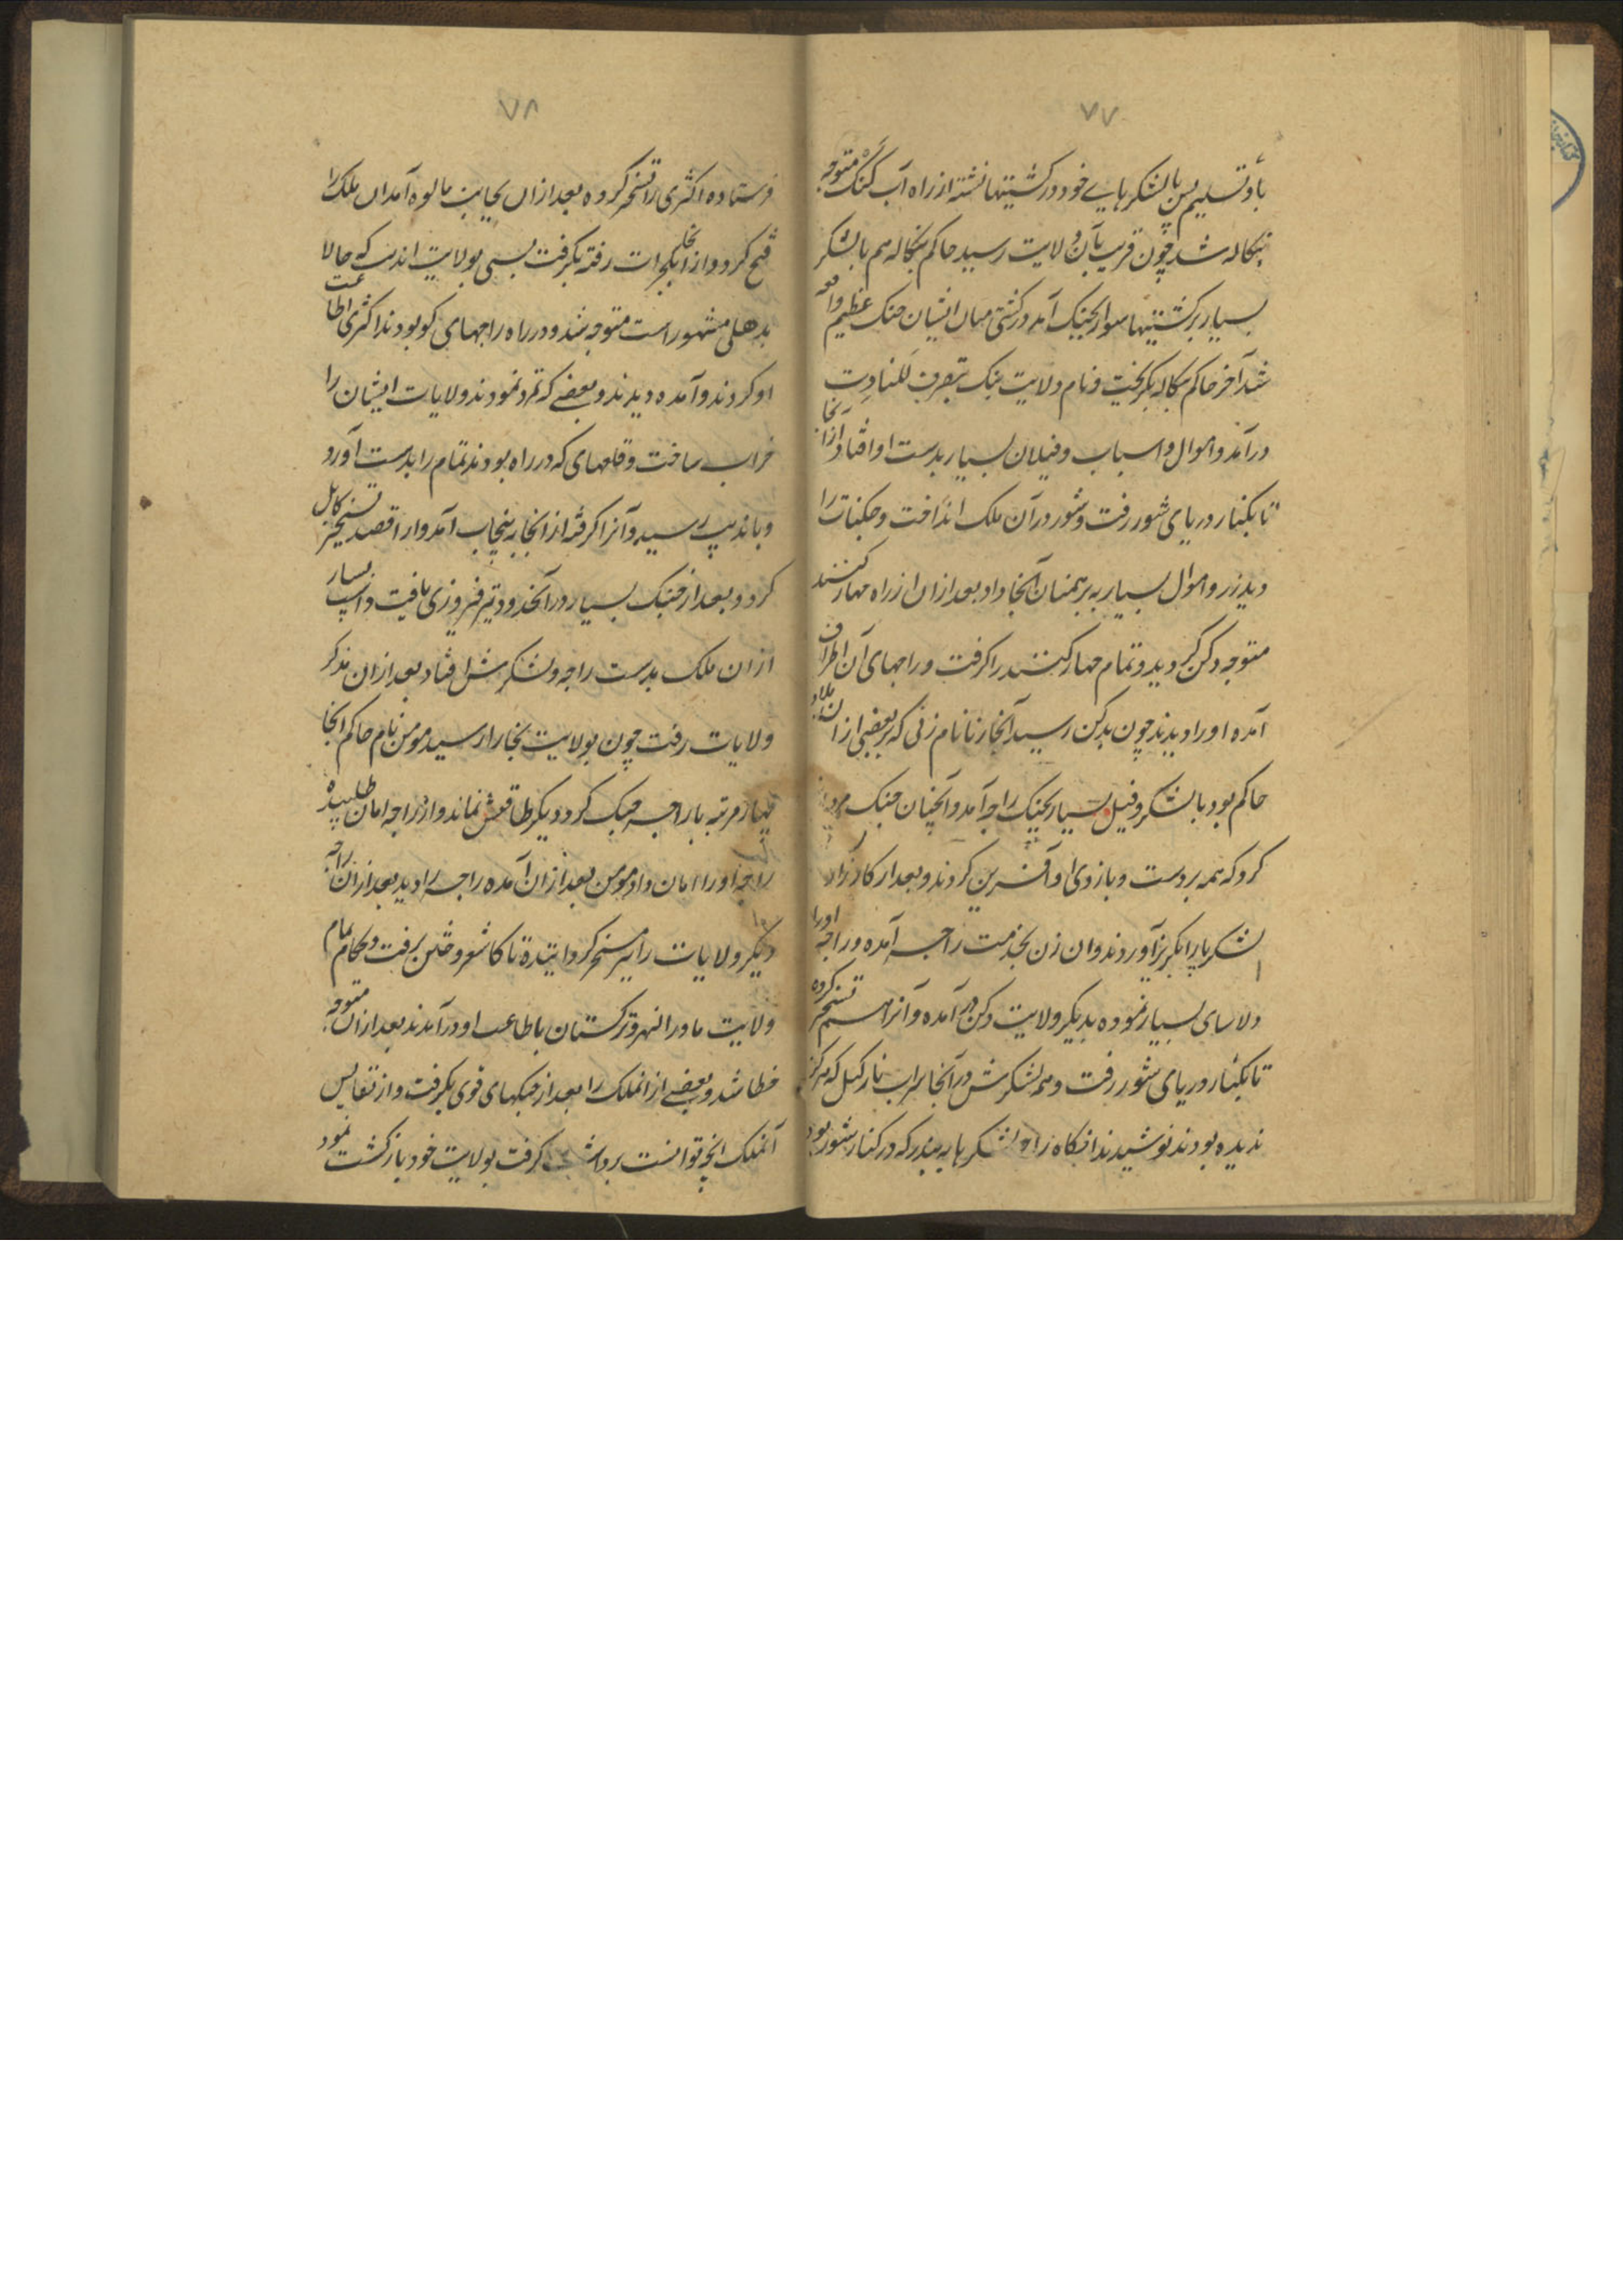 ۷۷
باو تسلیم پس بالشکرهایے خود در کشتیتها نشته از راه آب کنک متوجه
بنکاله شد چون قریب بآن ولایت رسید حاکم بنکاله هم بالشکر
بسیار برکشتیتها سوار بجنک آمد در کشتی میان ایشان جنک عظیم واقع
شد آخر حاکم بنکاله بکریخت و تمام ولایت بنک بتصرف للتادت
درآمد و اموال و اسباب و فیلان بسیار بدست او افتاد از آنجا
تا بکنار دریای شور رفت و شور در آن ملک انداخت و جکنات را
دید زر و اموال بسیار به برهمنان آنجا داد بعد از ان از راه جهارکنند
متوجه دکن کردید و تمام جهارکنند را کرفت و راجهای آن اطراف
آمده او را دیدند چون بدکن رسید آنجا رنا نام زنی که بر بعضی از ان بلاد
حاکم بود با لشکر و فیل بسیار بجنک راجه آمد و آنچنان جنک مردانه
کرد که همه بر دست و بازوی او آفرین کردند و بعد از کارزار
لشکر پا را بکریز آوردند و ان زن بخدمت راجه آمده و راجه او را
دلاسای بسیار نموده بدیکر ولایت دکن در آمده و آنرا هم تسخیر کرده
تا بکنار دریای شور رفت و همه لشکرش در آنجا شراب نارکیل که هرکز
ندیده بودند نوشیدند انکاه راجه لشکرها به بندر که در کنار شور بود
۷۸
فرستاده اکثری را تسخیر کرده بعد از ان بجانب مالوه آمد ان ملک را
فتح کرد و از انجا بکجرات رفته بکرفت بسی بولایت اندپت که حالا
بدهلی مشهور است متوجه شد و در راه راجهای کو بودند اکثری اطاعت
او کردند و آمده دیدند و بعضے که تمرد نمودند ولایات ایشان را
خراب ساخت و قلعهای که در راه بودند تمام را بدست آورد
و باندپت رسید و آنرا کرفته از انجا به پنجاب آمد و از ا قصد تسخیر کابل
کرد و بعد از جنک بسیار در آنحدود نیز فیروزی یافت و اسپ بسیار
از ان ملک بدست راجه و لشکرش افتاد بعد از ان بدیکر
ولایات رفت چون بولایت بخارا رسید مومن نام حاکم انجا
چهار مرتبه با راجه جنک کرد و دیکر طاقتش نماند و از راجه امان طلبیده
راجه او را امان داد مومن بعد از ان آمده راجه را دید بعد از ان راجه
دیکر ولایات را نیز مسخر کردانیده تا کاشغر و ختن برفت و حکام تمام
ولایت ماورا النهر و ترکستان باطاعت او درآمدند بعد از ان متوجه
خطا شد و بعضے از انملک را بعد از جنکهای قوی بکرفت و از نفایس
آنملک انچه توانست برداشت کرفت بولایت خود بازکشت نمود